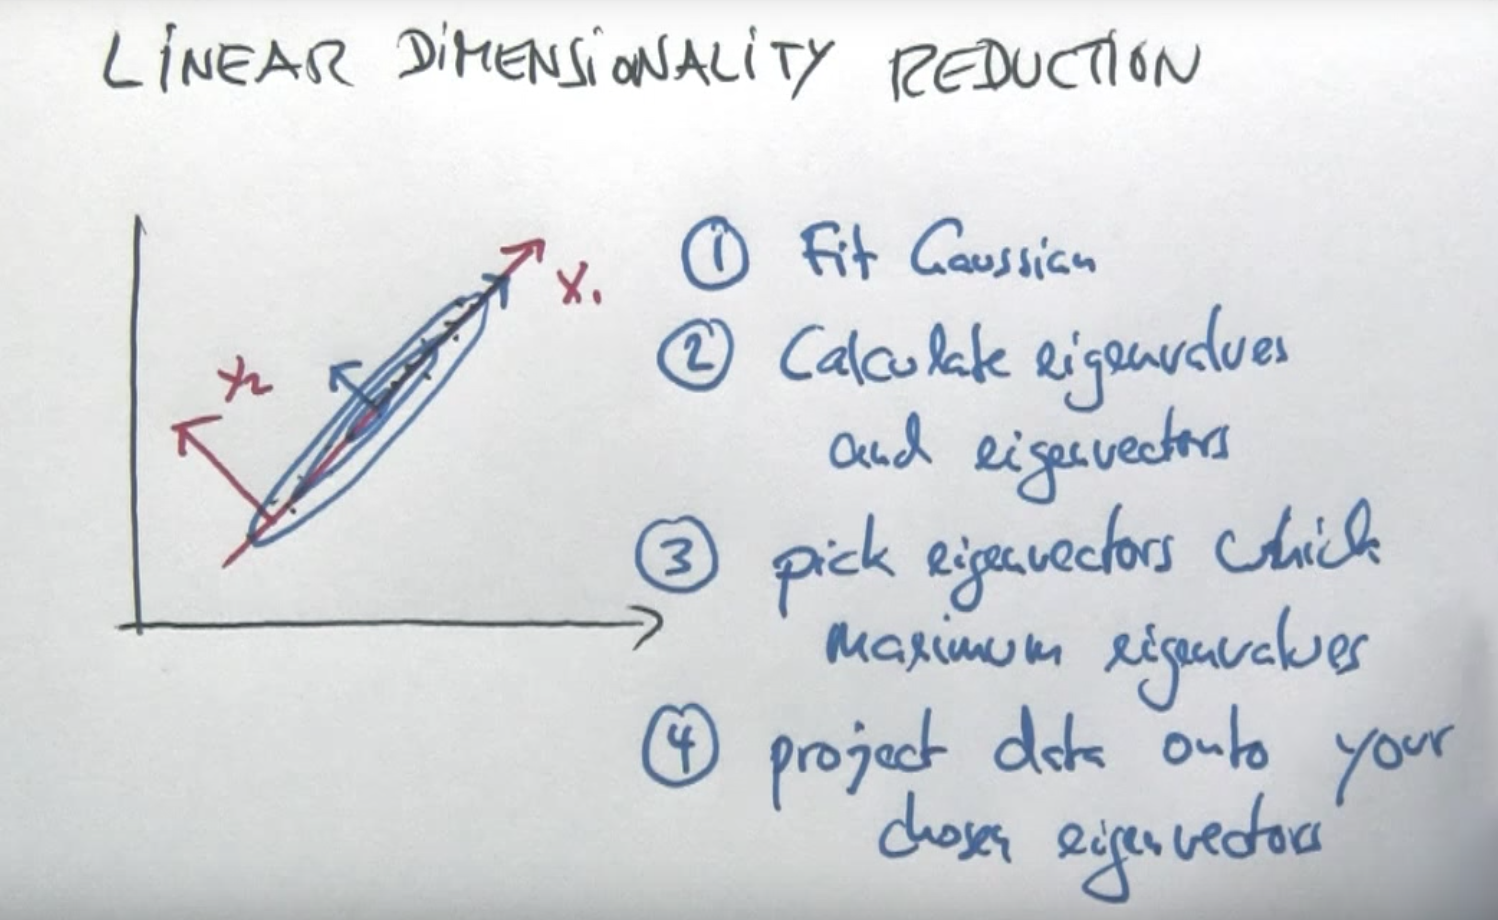 LINEAR DIMENSIONALITY REDUCTION
X1
X2
① Fit Gaussian
② Calculate eigenvalues
and eigenvectors
③ pick eigenvectors which
maximum eigenvalues
④ project data onto your
chosen eigenvectors